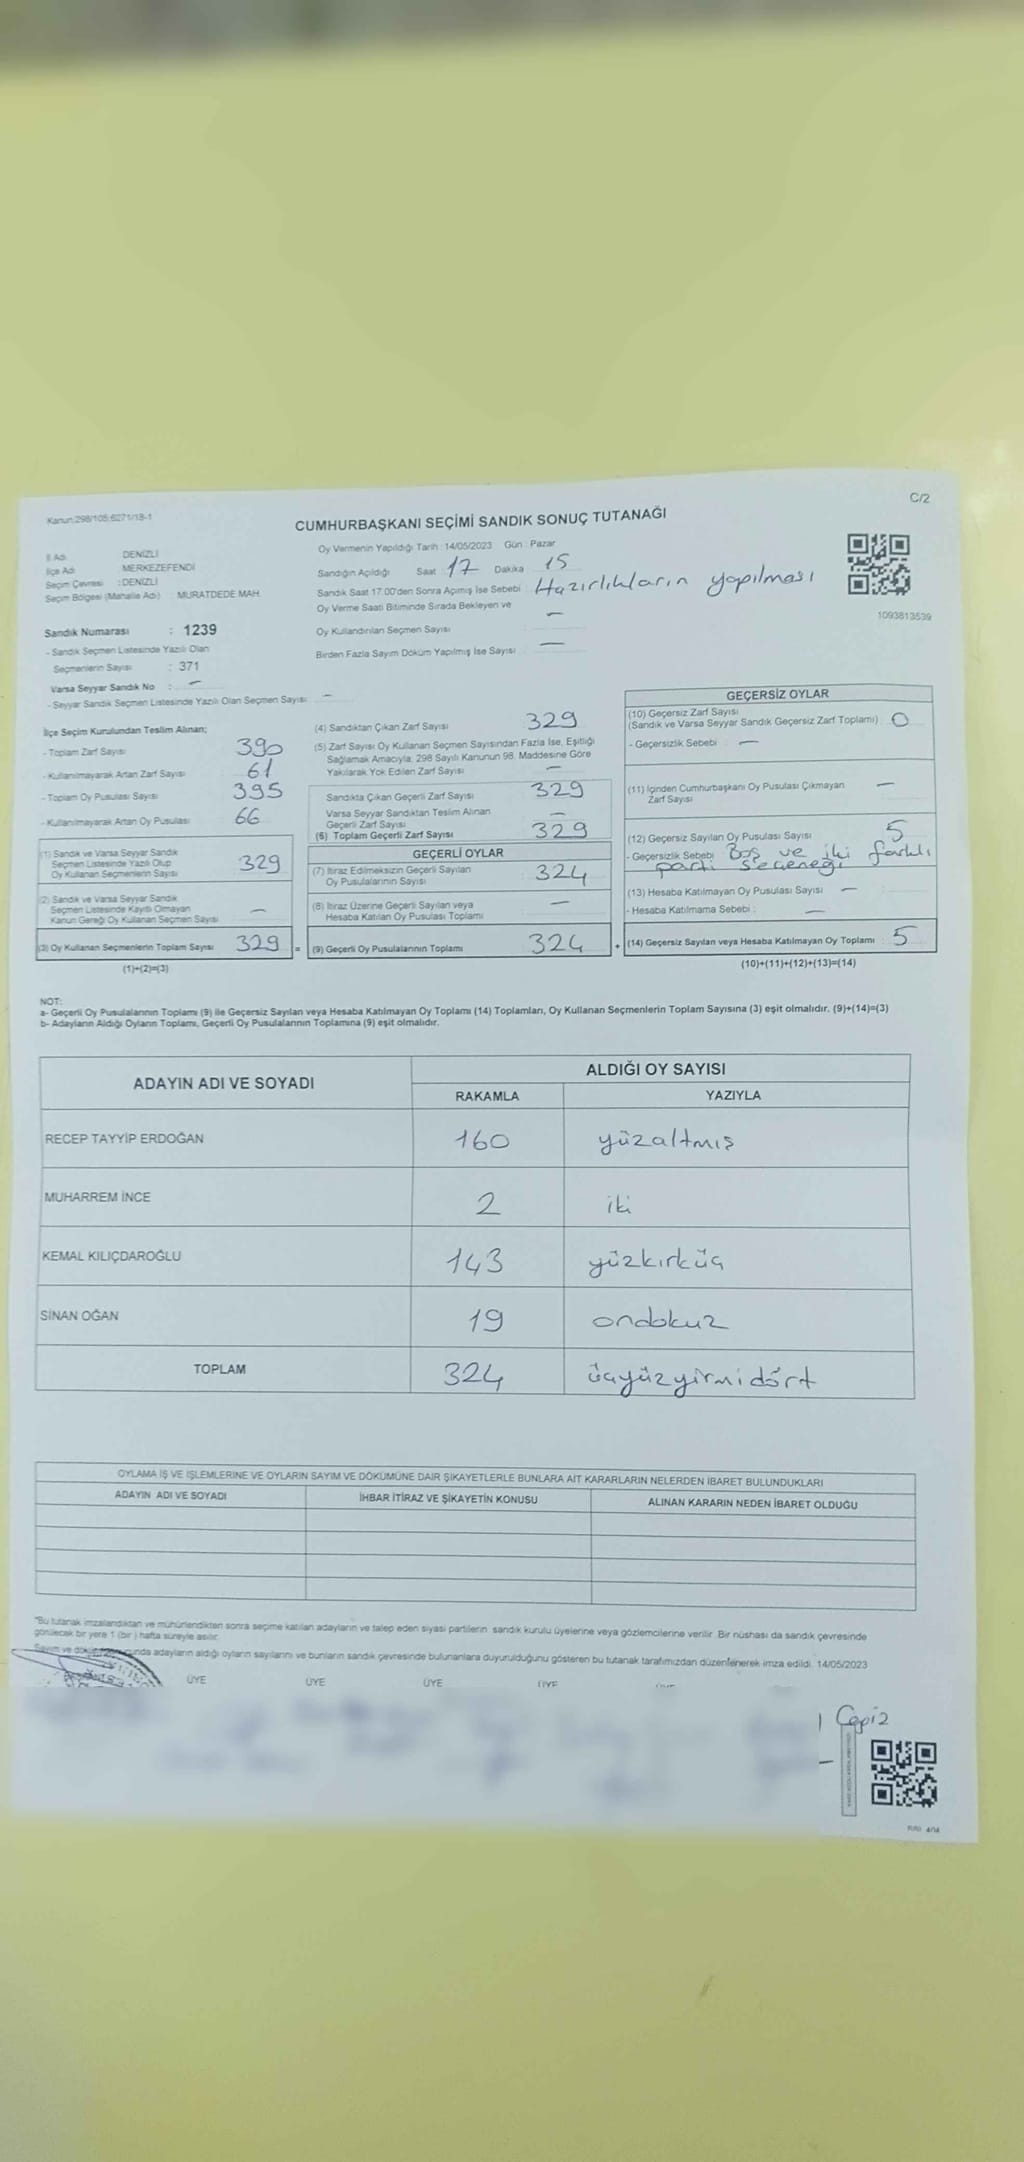 Kanun:298/105;6271/18-1
C/2
CUMHURBAŞKANI SEÇİMİ SANDIK SONUÇ TUTANAĞI
İl Adı : DENİZLİ
İlçe Adı : MERKEZEFENDİ
Seçim Çevresi : DENİZLİ
Seçim Bölgesi (Mahalle Adı) : MURATDEDE MAH.
Sandık Numarası : 1239
- Sandık Seçmen Listesinde Yazılı Olan
Seçmenlerin Sayısı : 371
Varsa Seyyar Sandık No : —
- Seyyar Sandık Seçmen Listesinde Yazılı Olan Seçmen Sayısı : —
Oy Vermenin Yapıldığı Tarih : 14/05/2023 Gün : Pazar
Sandığın Açıldığı Saat 17 Dakika 15
Sandık Saat 17.00'den Sonra Açımış İse Sebebi : Hazırlıkların yapılması
Oy Verme Saati Bitiminde Sırada Bekleyen ve
Oy Kullandırılan Seçmen Sayısı : —
Birden Fazla Sayım Döküm Yapılmış İse Sayısı : —
1093813539
İlçe Seçim Kurulundan Teslim Alınan;
- Toplam Zarf Sayısı 390
- Kullanılmayarak Artan Zarf Sayısı 61
- Toplam Oy Pusulası Sayısı 395
- Kullanılmayarak Artan Oy Pusulası 66
(1) Sandık ve Varsa Seyyar Sandık
Seçmen Listesinde Yazılı Olup
Oy Kullanan Seçmenlerin Sayısı 329
(2) Sandık ve Varsa Seyyar Sandık
Seçmen Listesinde Kayıtlı Olmayan
Kanun Gereği Oy Kullanan Seçmen Sayısı —
(3) Oy Kullanan Seçmenlerin Toplam Sayısı 329 =
(1)+(2)=(3)
(4) Sandıktan Çıkan Zarf Sayısı 329
(5) Zarf Sayısı Oy Kullanan Seçmen Sayısından Fazla İse, Eşitliği
Sağlamak Amacıyla, 298 Sayılı Kanunun 98. Maddesine Göre
Yakılarak Yok Edilen Zarf Sayısı —
Sandıkta Çıkan Geçerli Zarf Sayısı 329
Varsa Seyyar Sandıktan Teslim Alınan
Geçerli Zarf Sayısı —
(6) Toplam Geçerli Zarf Sayısı 329
GEÇERLİ OYLAR
(7) İtiraz Edilmeksizin Geçerli Sayılan
Oy Pusulalarının Sayısı 324
(8) İtiraz Üzerine Geçerli Sayılan veya
Hesaba Katılan Oy Pusulası Toplamı —
(9) Geçerli Oy Pusulalarının Toplamı 324 +
GEÇERSİZ OYLAR
(10) Geçersiz Zarf Sayısı
(Sandık ve Varsa Seyyar Sandık Geçersiz Zarf Toplamı) 0
- Geçersizlik Sebebi : —
(11) İçinden Cumhurbaşkanı Oy Pusulası Çıkmayan
Zarf Sayısı —
(12) Geçersiz Sayılan Oy Pusulası Sayısı 5
- Geçersizlik Sebebi Boş ve iki farklı
parti seçeneği
(13) Hesaba Katılmayan Oy Pusulası Sayısı —
- Hesaba Katılmama Sebebi : —
(14) Geçersiz Sayılan veya Hesaba Katılmayan Oy Toplamı 5
(10)+(11)+(12)+(13)=(14)
NOT:
a- Geçerli Oy Pusulalarının Toplamı (9) ile Geçersiz Sayılan veya Hesaba Katılmayan Oy Toplamı (14) Toplamları, Oy Kullanan Seçmenlerin Toplam Sayısına (3) eşit olmalıdır. (9)+(14)=(3)
b- Adayların Aldığı Oyların Toplamı, Geçerli Oy Pusulalarının Toplamına (9) eşit olmalıdır.
ADAYIN ADI VE SOYADI
ALDIĞI OY SAYISI
RAKAMLA YAZIYLA
RECEP TAYYİP ERDOĞAN 160 yüzaltmış
MUHARREM İNCE 2 iki
KEMAL KILIÇDAROĞLU 143 yüzkırküç
SİNAN OĞAN 19 ondokuz
TOPLAM 324 üçyüzyirmidört
OYLAMA İŞ VE İŞLEMLERİNE VE OYLARIN SAYIM VE DÖKÜMÜNE DAİR ŞİKAYETLERLE BUNLARA AİT KARARLARIN NELERDEN İBARET BULUNDUKLARI
ADAYIN ADI VE SOYADI İHBAR İTİRAZ VE ŞİKAYETİN KONUSU ALINAN KARARIN NEDEN İBARET OLDUĞU
"Bu tutanak imzalandıktan ve mühürlendikten sonra seçime katılan adayların ve talep eden siyasi partilerin sandık kurulu üyelerine veya gözlemcilerine verilir. Bir nüshası da sandık çevresinde
görülecek bir yere 1 (bir ) hafta süreyle asılır.
Sayım ve adayların aldığı oyların sayılarını ve bunların sandık çevresinde bulunanlara duyurulduğunu gösteren bu tutanak tarafımızdan düzenlenerek imza edildi. 14/05/2023
ÜYE ÜYE ÜYE ÜYE